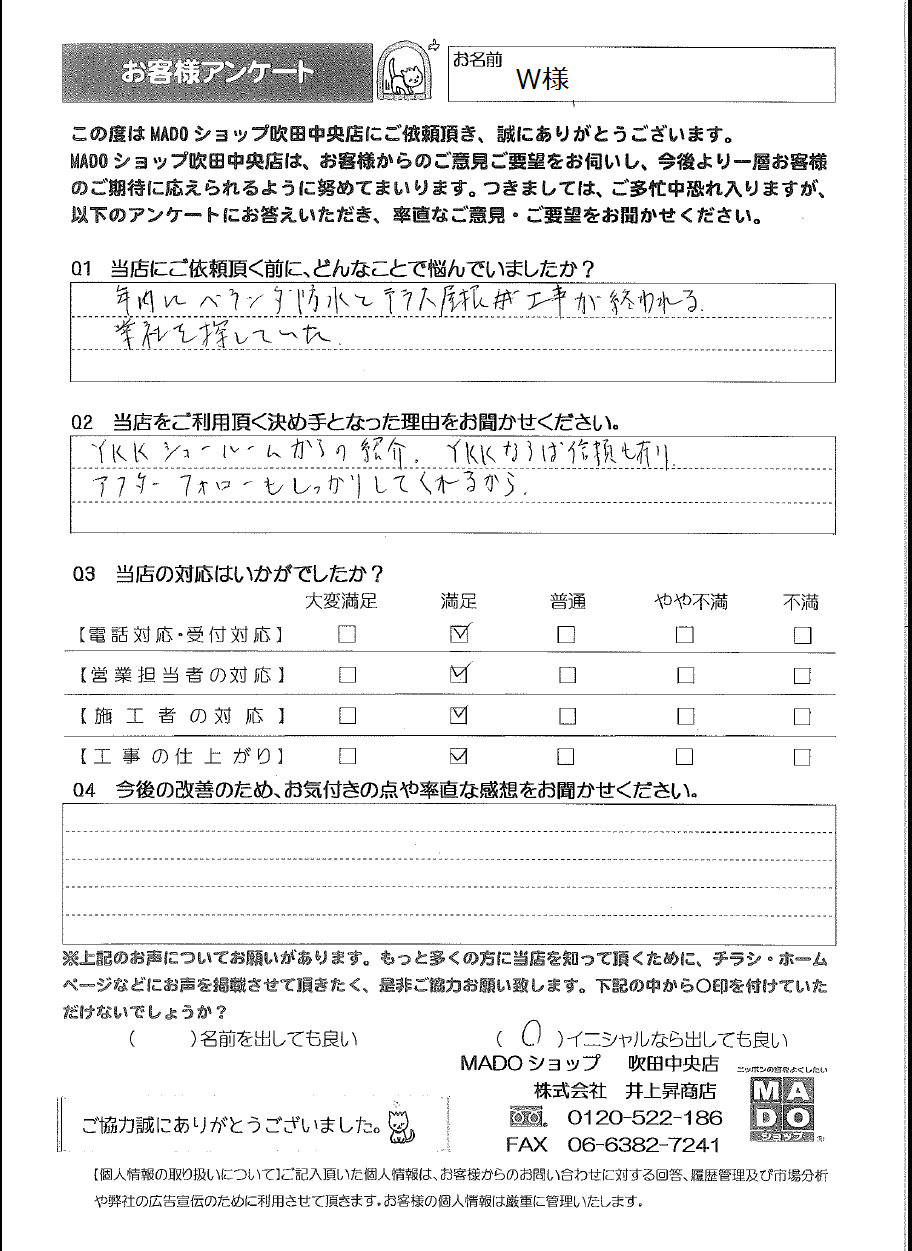 お客様アンケート
お名前
W様
この度は MADO ショップ吹田中央店にご依頼頂き、誠にありがとうございます。
MADO ショップ吹田中央店は、お客様からのご意見ご要望をお伺いし、今後より一層お客様
のご期待に応えられるように努めてまいります。つきましては、ご多忙中恐れ入りますが、
以下のアンケートにお答えいただき、率直なご意見・ご要望をお聞かせください。
Q1 当店にご依頼頂く前に、どんなことで悩んでいましたか？
年内にベランダ防水とテラス屋根 工事が終われる
業社を探していた.
Q2 当店をご利用頂く決め手となった理由をお聞かせください。
YKKショールームからの紹介. YKKならば信頼も有り
アフターフォローもしっかりしてくれるから.
Q3 当店の対応はいかがでしたか？
大変満足 満足 普通 やや不満 不満
【電話対応・受付対応】 □ ☑ □ □ □
【営業担当者の対応】 □ ☑ □ □ □
【施工者の対応】 □ ☑ □ □ □
【工事の仕上がり】 □ ☑ □ □ □
Q4 今後の改善のため、お気付きの点や率直な感想をお聞かせください。
※上記のお声についてお願いがあります。もっと多くの方に当店を知って頂くために、チラシ・ホーム
ページなどにお声を掲載させて頂きたく、是非ご協力お願い致します。下記の中から〇印を付けていた
だけないでしょうか？
( )名前を出しても良い (〇)イニシャルなら出しても良い
MADO ショップ 吹田中央店
株式会社 井上昇商店
0120-522-186
FAX 06-6382-7241
ニッポンの窓をよくしたい
MADO
ショップ
ご協力誠にありがとうございました。
【個人情報の取り扱いについて】ご記入頂いた個人情報は、お客様からのお問い合わせに対する回答、履歴管理及び市場分析
や弊社の広告宣伝のために利用させて頂きます。お客様の個人情報は厳重に管理いたします。